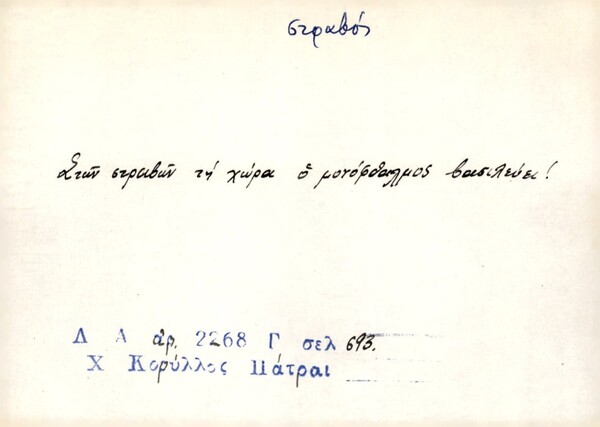 στραβός
Στῶν στραβῶν τή χώρα ὁ μονόφθαλμος βασιλεύει!
Δ Α ἀρ. 2268 Γ σελ 693.
Χ Κορύλλος Πάτραι